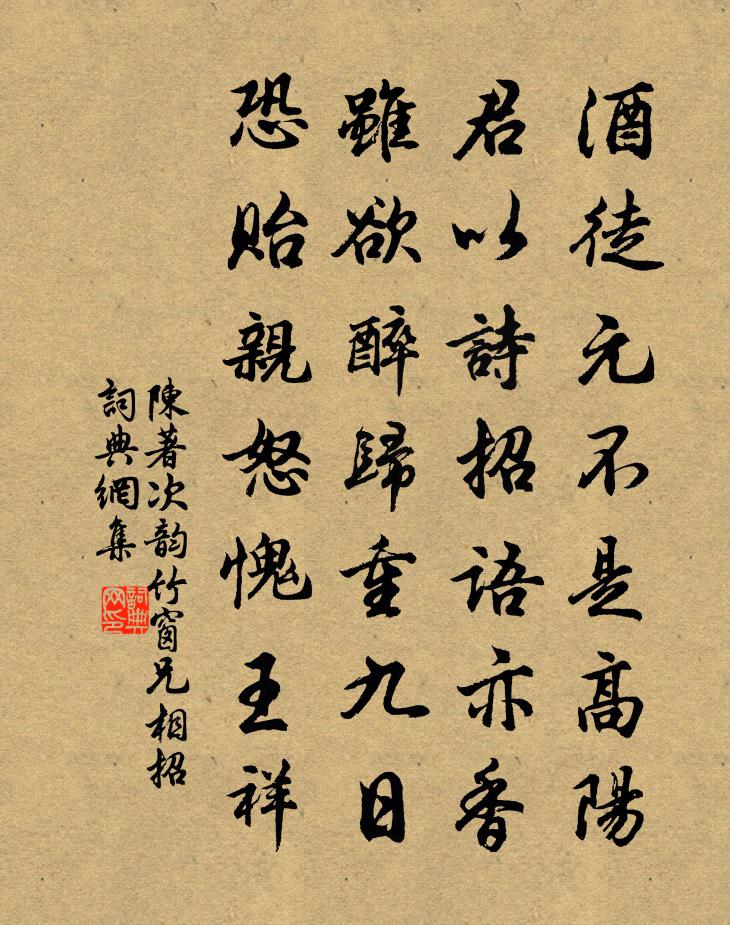 酒徒元不是高陽
君以詩招語亦香
雖欲醉歸重九日
恐貽親怒愧王祥
陳著次韵竹窗兄相招
詞典網集
詞典网印